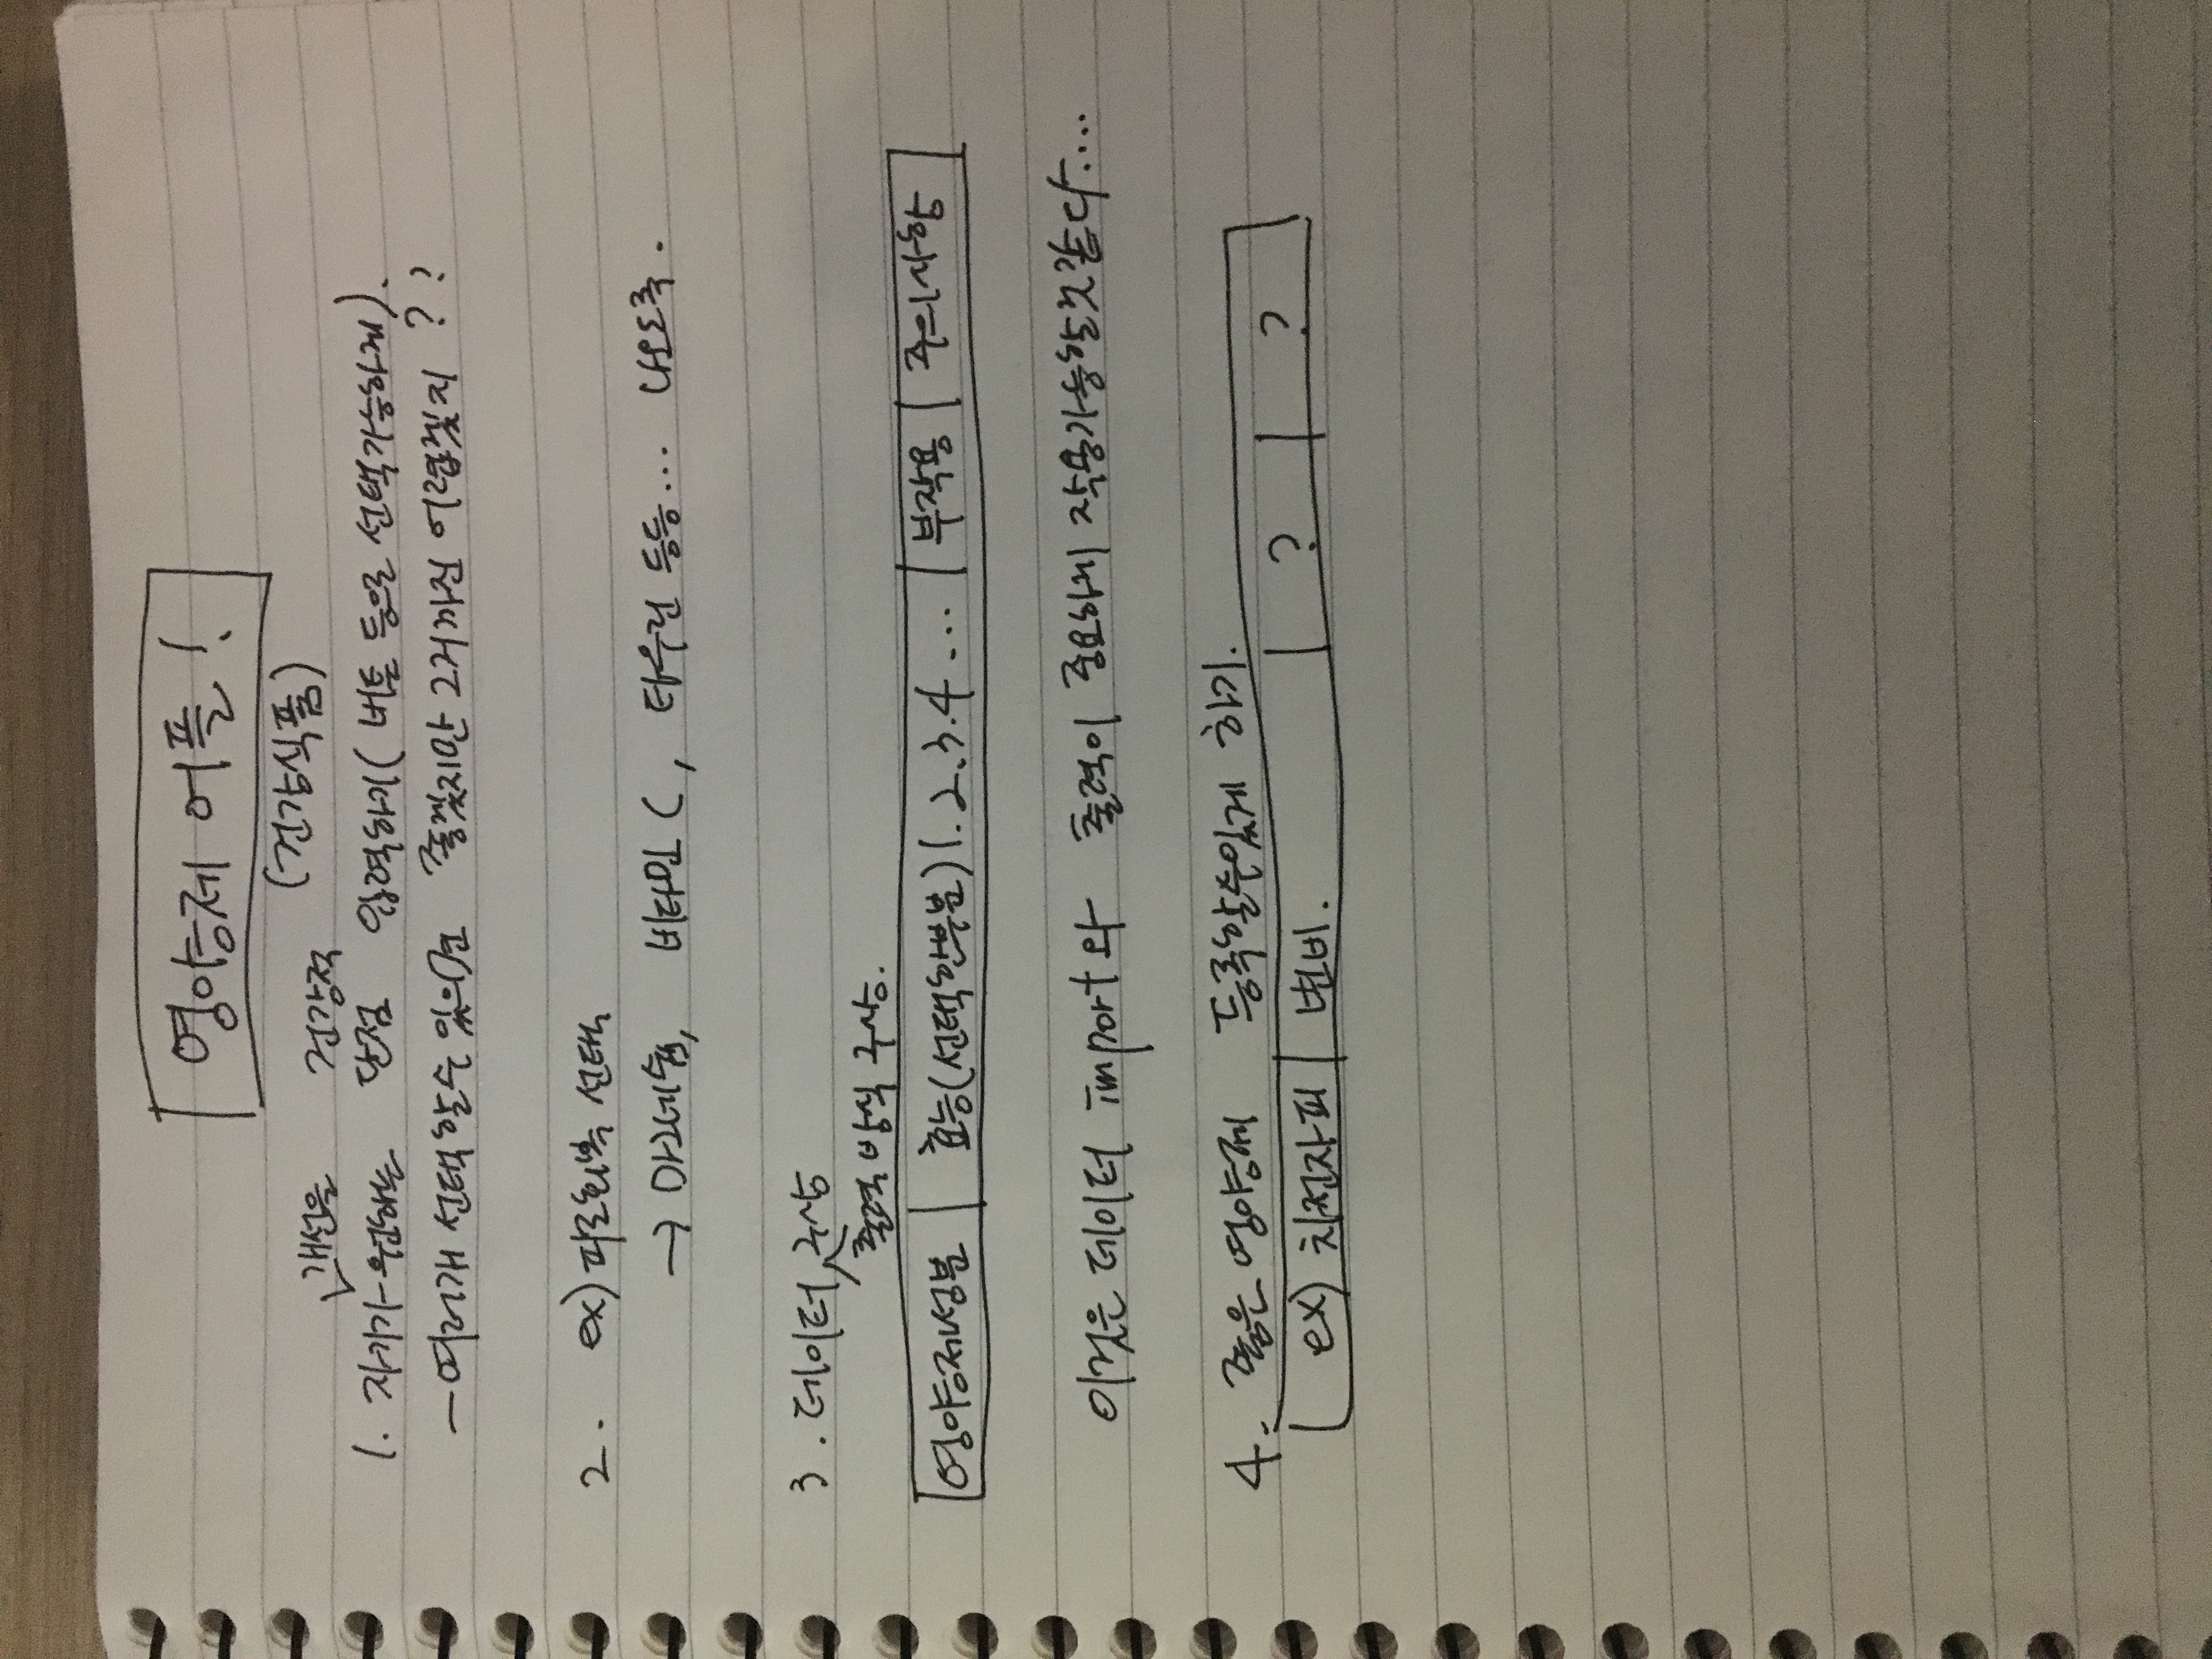 영양제 어플!
(건강식품)
개선을 건강적
1. 자기가 원하는 단점 입력하기( 버튼 등으로 선택가능하게).
-여러개 선택할수 있으면 좋겠지만 그거까진 어렵겠지 ??
2. ex) 피로회복 선택
→ 마그네슘, 비타민 C, 타우린 등등... 나오도록.
3. 데이터 구상
출력 방식 구상.
영양제성분 효능(선택한부분) 1.2.3.4 ... 부작용 주의사항
이것은 데이터 import와 출력이 중요하게 작용가능할것같다....
4. 좋은 영양제 등록할수있게 하기.
ex) 차전자피 변비. ? ?